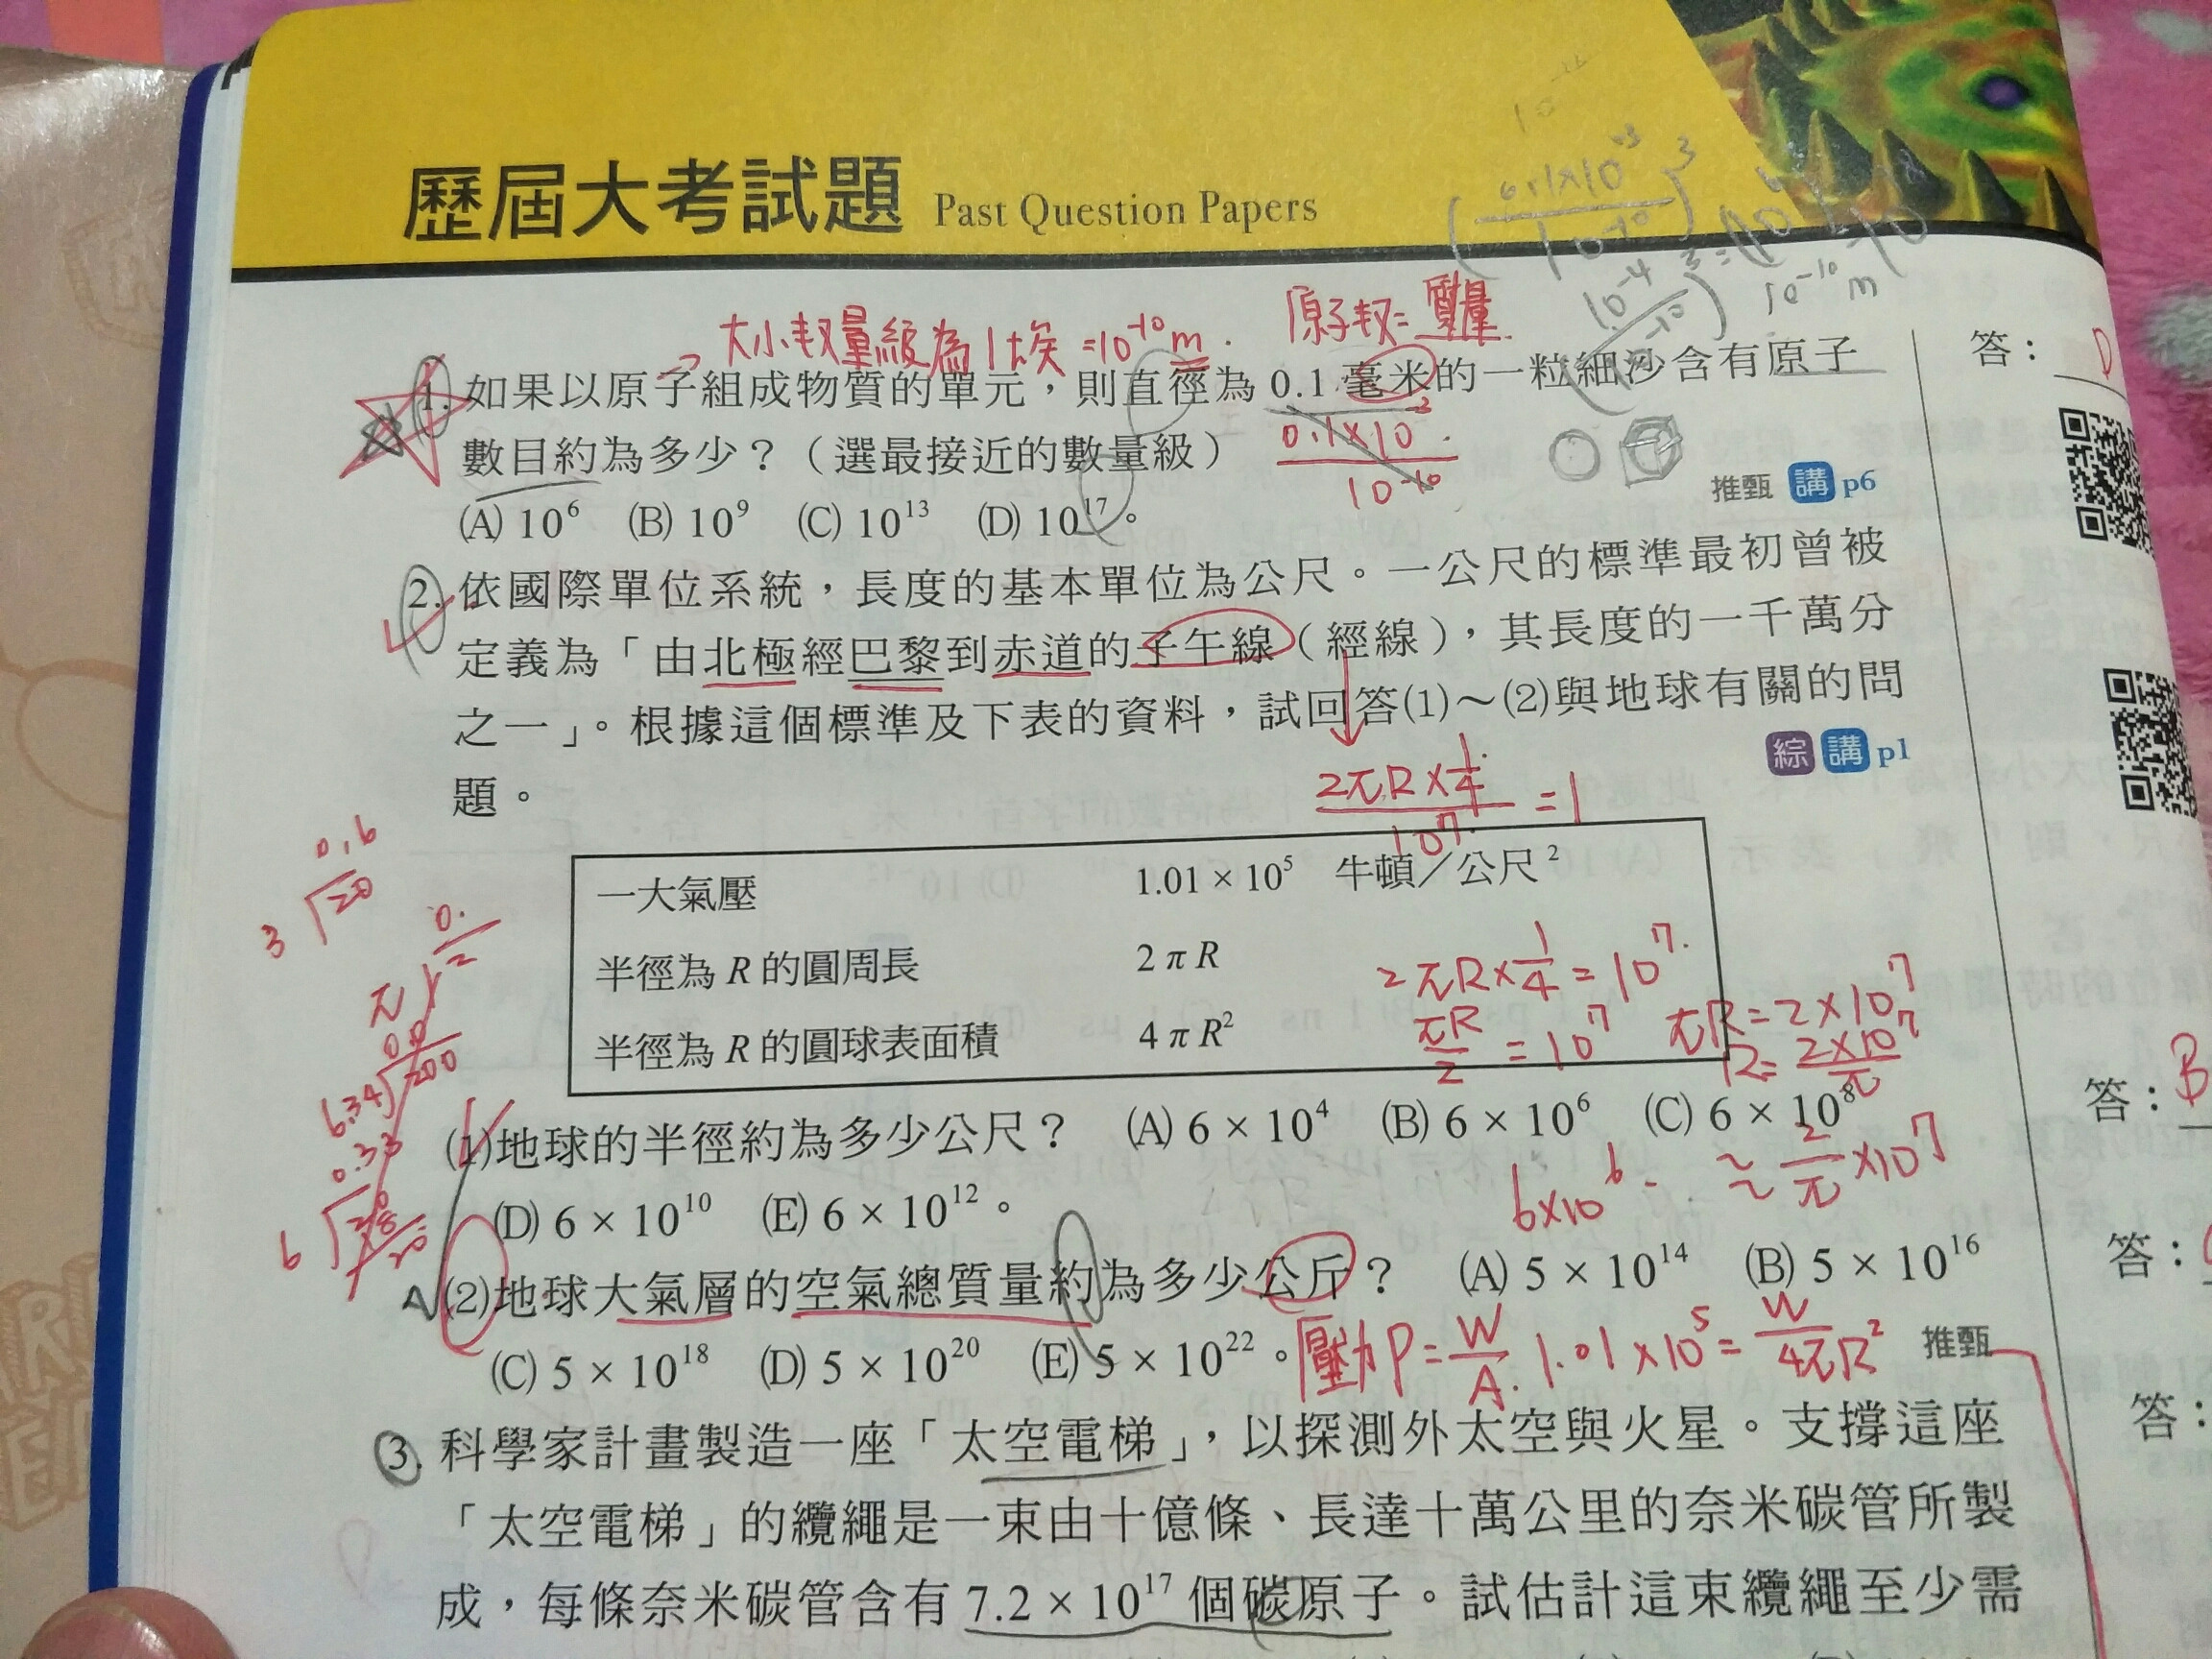 歷屆大考試題 Past Question Papers
→ 大小數量級為1埃=10⁻¹⁰m.
原子數=質量
10⁻¹⁰ m
1. 如果以原子組成物質的單元，則直徑為 0.1 毫米的一粒細沙含有原子
數目約為多少？（選最接近的數量級）
0.1×10⁻³
10⁻¹⁰
推甄 講 p6
(A) 10⁶ (B) 10⁹ (C) 10¹³ (D) 10¹⁷。
答： D
2. 依國際單位系統，長度的基本單位為公尺。一公尺的標準最初曾被
定義為「由北極經巴黎到赤道的子午線（經線），其長度的一千萬分
之一」。根據這個標準及下表的資料，試回答(1)～(2)與地球有關的問
題。
綜 講 p1
2πR×1/4
10⁷
=1
一大氣壓 1.01 × 10⁵ 牛頓／公尺²
半徑為 R 的圓周長 2πR
半徑為 R 的圓球表面積 4πR²
2πR×1/4=10⁷.
πR/2=10⁷
πR=2×10⁷
R=2×10⁷/π
(1)地球的半徑約為多少公尺？ (A) 6 × 10⁴ (B) 6 × 10⁶ (C) 6 × 10⁸
答： B
(D) 6 × 10¹⁰ (E) 6 × 10¹²。
6×10⁶
≈2/π×10⁷
(2)地球大氣層的空氣總質量約為多少公斤？ (A) 5 × 10¹⁴ (B) 5 × 10¹⁶
答：
(C) 5 × 10¹⁸ (D) 5 × 10²⁰ (E) 5 × 10²²。
壓力P=W/A. 1.01×10⁵=W/4πR²
推甄
3. 科學家計畫製造一座「太空電梯」，以探測外太空與火星。支撐這座
答：
「太空電梯」的纜繩是一束由十億條、長達十萬公里的奈米碳管所製
成，每條奈米碳管含有 7.2 × 10¹⁷ 個碳原子。試估計這束纜繩至少需